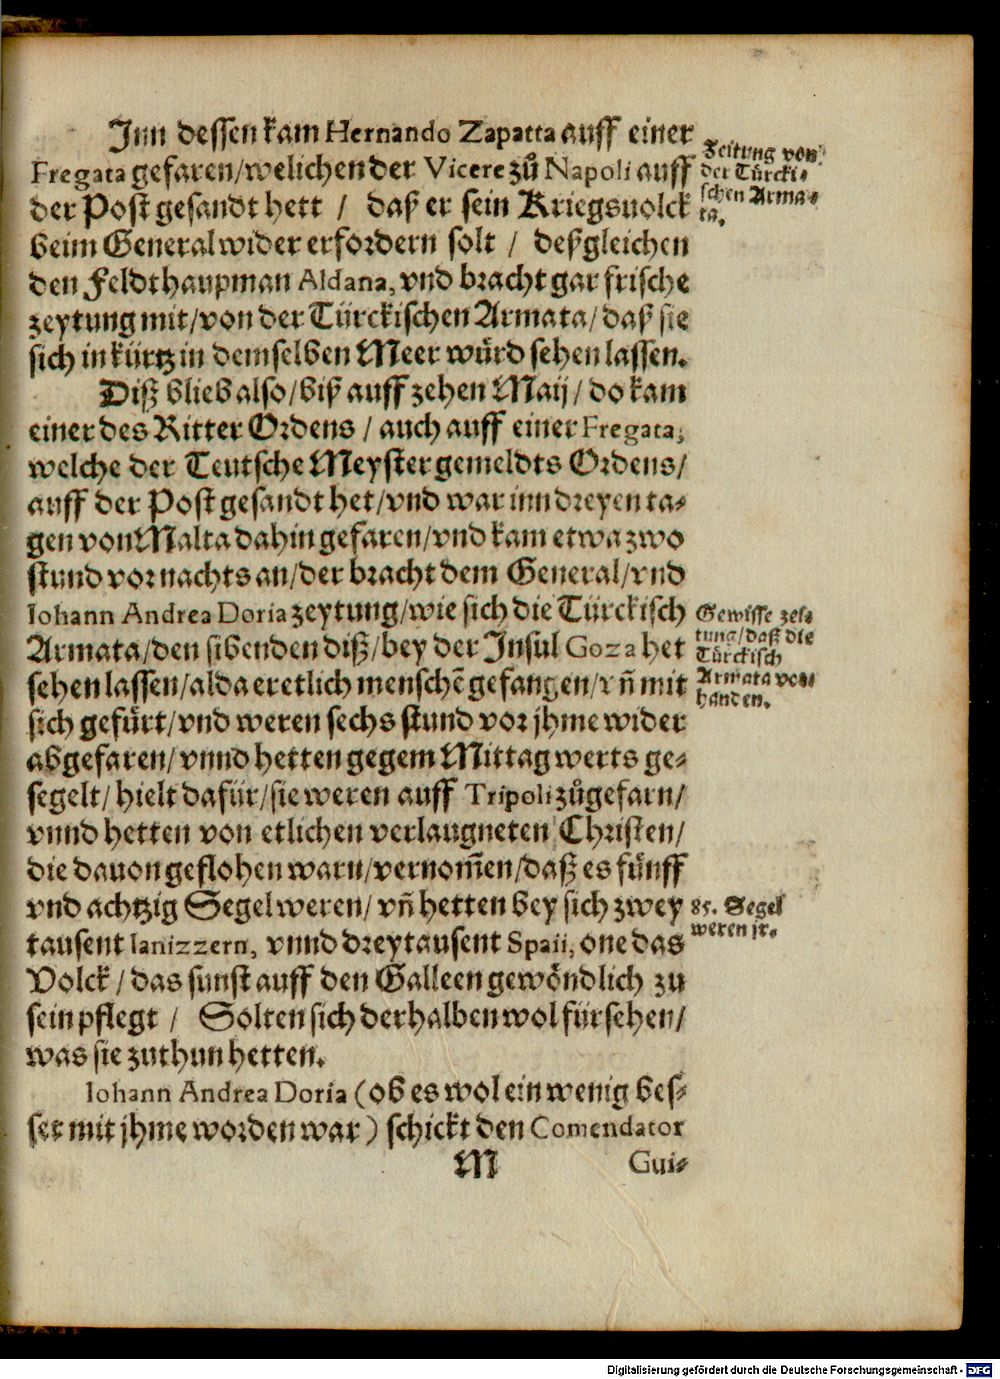 Jnn dessen kam Hernando Zapatta auff einer
Fregata gefaren/welichen der Vicere zů Napoli auff
der Post gesandt hett / daß er sein Kriegsuolck
beim General wider erfordern solt / deßgleichen
den Feldthaupman Aldana, vnd bracht gar frische
zeytung mit/von der Türckischen Armata/daß sie
sich in kürtz in demselben Meer würd sehen lassen.
Zeitung von
der Türcki⸗
schen Arma⸗
ta.
Diß blieb also/biß auff zehen Maij/do kam
einer des Ritter Ordens / auch auff einer Fregata,
welche der Teutsche Meyster gemeldts Ordens/
auff der Post gesandt het/vnd war inn dreyen ta⸗
gen von Malta dahin gefaren/vnd kam etwa zwo
stund vor nachts an/der bracht dem General/vnd
Iohann Andrea Doria zeytung/wie sich die Türckisch
Armata/den sibenden diß/bey der Jnsul Goza het
sehen lassen/alda er etlich menschē gefangen/vñ mit
sich gefürt/vnd weren sechs stund vor jhme wider
abgefaren/vnnd hetten gegem Mittag werts ge⸗
segelt/hielt dafür/sie weren auff Tripoli zůgefarn/
vnnd hetten von etlichen verlaugneten Christen/
die dauon geflohen warn/vernom̄en/daß es fünff
vnd achtzig Segel weren/vñ hetten bey sich zwey
tausent Ianizzern, vnnd dreytausent Spaii, one das
Volck / das sunst auff den Galleen gewöndlich zu
sein pflegt / Solten sich derhalben wol fürsehen/
was sie zuthun hetten.
Gewisse zei⸗
tung/daß die
Türckisch
Armata vor⸗
handen.
85. Segel
weren jr.
Iohann Andrea Doria (ob es wol ein wenig bes⸗
ser mit jhme worden war) schickt den Comendator
M
Gui⸗
Digitalisierung gefördert durch die Deutsche Forschungsgemeinschaft - DFG